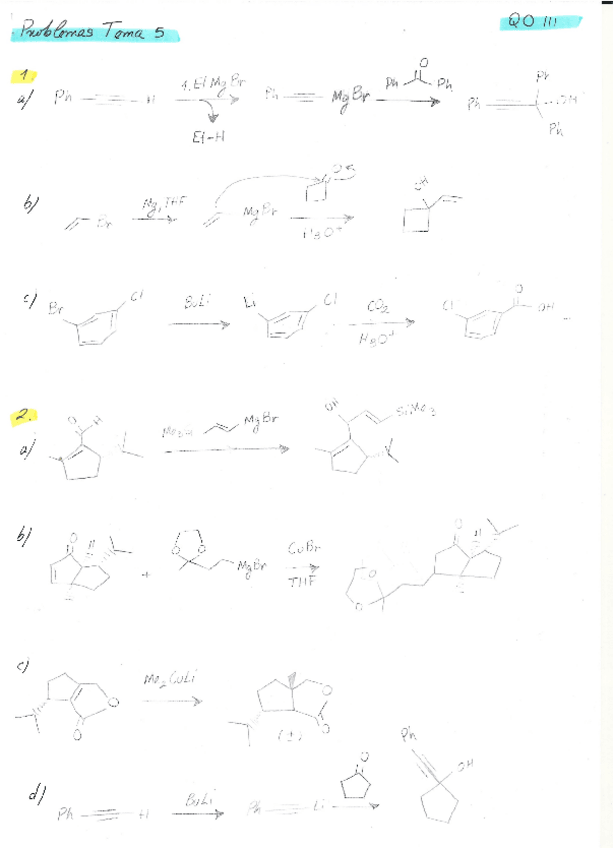 Problemas Tema 5
QO III
1.
a) Ph H 1. EtMgBr Ph MgBr Ph O Ph Ph Ph OH Ph
Et-H
b) Br Mg, THF MgBr H3O+ OH
c) Br Cl BuLi Li Cl CO2 H3O+ Cl O OH
2.
a) O H Me3Si MgBr OH SiMe3
b) O H + O O MgBr CuBr THF O O O H
c) O O Me2CuLi O O (±)
d) Ph H BuLi Ph Li O Ph OH